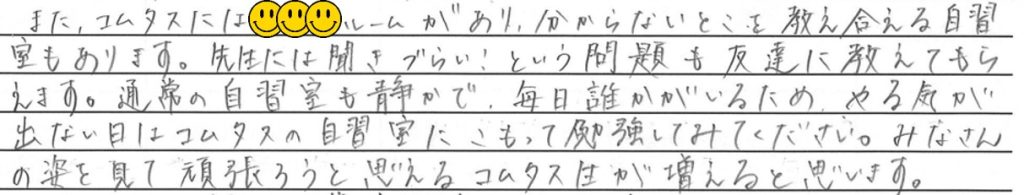 また、コムタスには ルームがあり、分からないとこを教え合える自習
室もあります。先生には聞きづらい!という問題も友達に教えてもら
えます。通常の自習室も静かで、毎日誰かがいるため、やる気が
出ない日はコムタスの自習室にこもって勉強してみてください。みなさん
の姿を見て頑張ろうと思えるコムタス生が増えると思います。